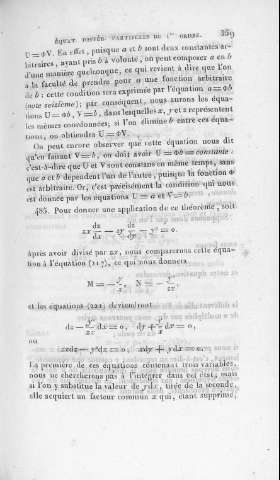 ÉQUAT. DIFFÉR. PARTIELLES DU 1er ORDRE. 359
U = ΦV. En effet, puisque a et b sont deux constantes ar-
bitraires, ayant pris b à volonté, on peut composer a en b
d'une manière quelconque, ce qui revient à dire que l'on
a la faculté de prendre pour a une fonction arbitraire
de b : cette condition sera exprimée par l'équation a = Φb
(note seizième); par conséquent, nous aurons les équa-
tions U = Φb, V = b, dans lesquelles x, y et z représentent
les mêmes coordonnées; si l'on élimine b entre ces équa-
tions, on obtiendra U = ΦV.
On peut encore observer que cette équation nous dit
qu'en faisant V = b, on doit avoir U = Φb = constante :
c'est-à-dire que U et V sont constans en même temps, sans
que a et b dépendent l'un de l'autre, puisque la fonction Φ
est arbitraire. Or, c'est précisément la condition qui nous
est donnée par les équations U = a et V = b.
485. Pour donner une application de ce théorème, soit
zx dz/dx − zy dz/dy − y² = 0.
après avoir divisé par zx, nous comparerons cette équa-
tion à l'équation (217), ce qui nous donnera
M = − y/x, N = − y²/zx,
et les équations (221) deviendront
dz − y²/zx dx = 0, dy + y/x dx = 0,
ou
zxdz − y²dx = 0, xdy + ydx = 0.
La première de ces équations contenant trois variables,
nous ne chercherons pas à l'intégrer dans cet état, mais
si l'on y substitue la valeur de ydx, tirée de la seconde,
elle acquiert un facteur commun x qui, étant supprimé,